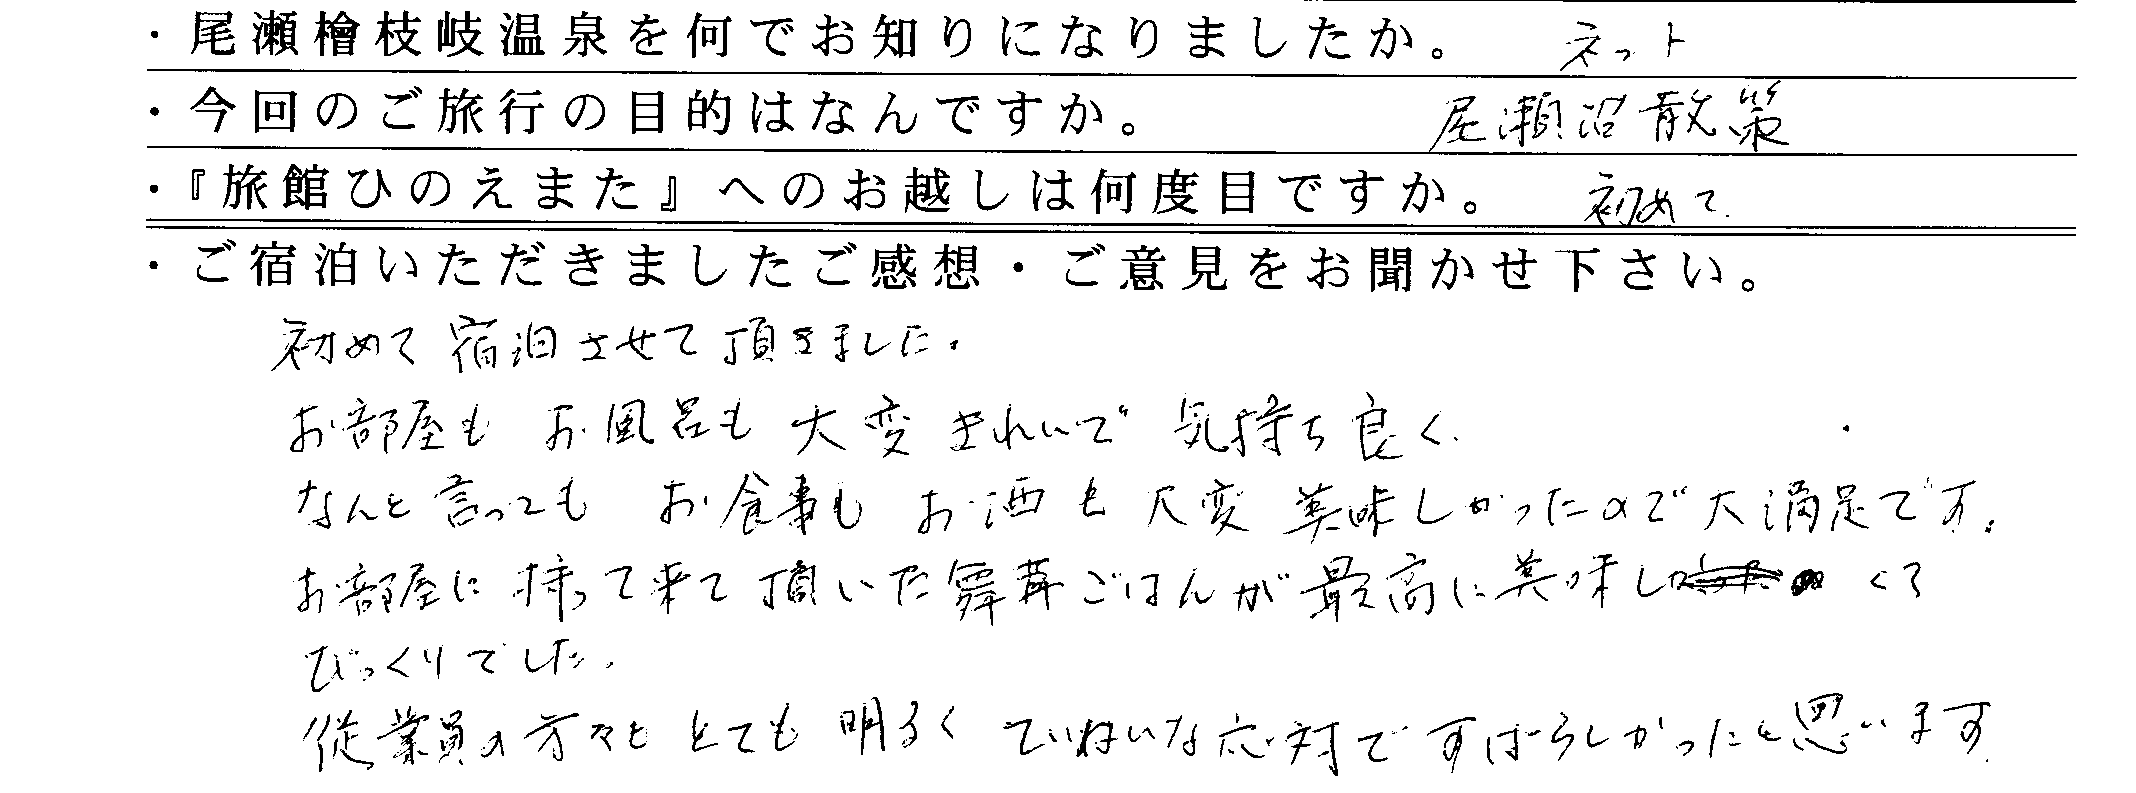 ・尾瀬檜枝岐温泉を何でお知りになりましたか。 ネット
・今回のご旅行の目的はなんですか。 尾瀬沼散策
・『旅館ひのえまた』へのお越しは何度目ですか。 初めて
・ご宿泊いただきましたご感想・ご意見をお聞かせ下さい。
初めて宿泊させて頂きました。
お部屋も お風呂も 大変きれいで 気持ち良く、
なんと言っても お食事も お酒も 大変 美味しかったので大満足です。
お部屋に 持って来て 頂いた舞茸ごはんが最高に美味しくて
びっくりでした。
従業員の方々も とても 明るく ていねいな応対ですばらしかったと思います